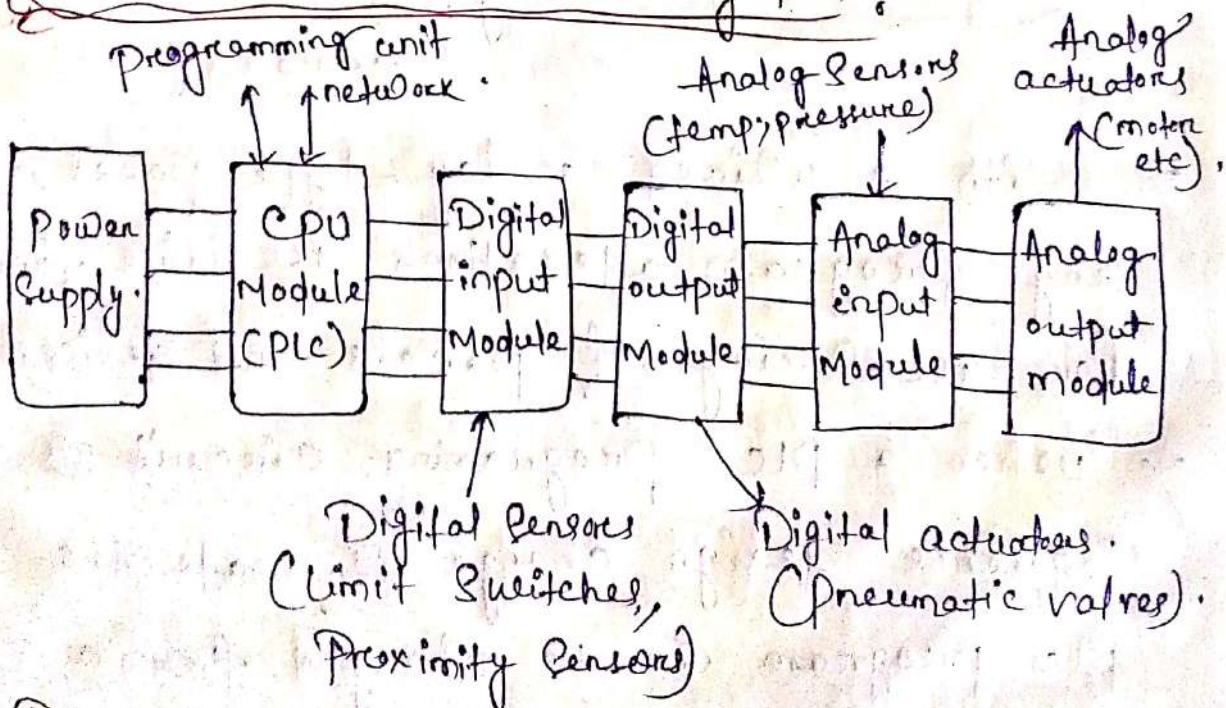 Programming unit
network.
Analog Sensors
(temp, pressure)
Analog
actuators
(motor
etc).
Power
Supply.
CPU
Module
(PLC)
Digital
input
Module
Digital
output
Module
Analog
input
Module
Analog
output
module
Digital Sensors
(Limit Switches,
Proximity Sensors)
Digital actuators.
(Pneumatic valves).